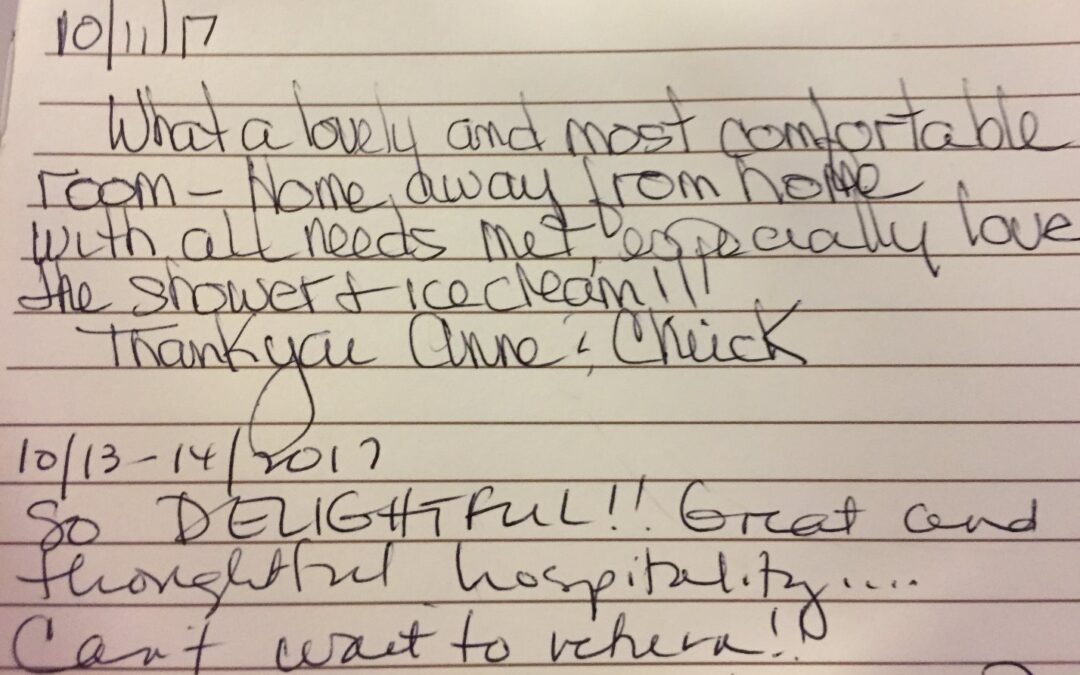 10/11/17
What a lovely and most comfortable
room - Home away from home
with all needs met, especially love
the shower + ice cream!!!
Thank you Anne & Chuick
10/13-14/2017
So DELIGHTFUL!! Great and
thoughtful hospitality....
Can't wait to return!!